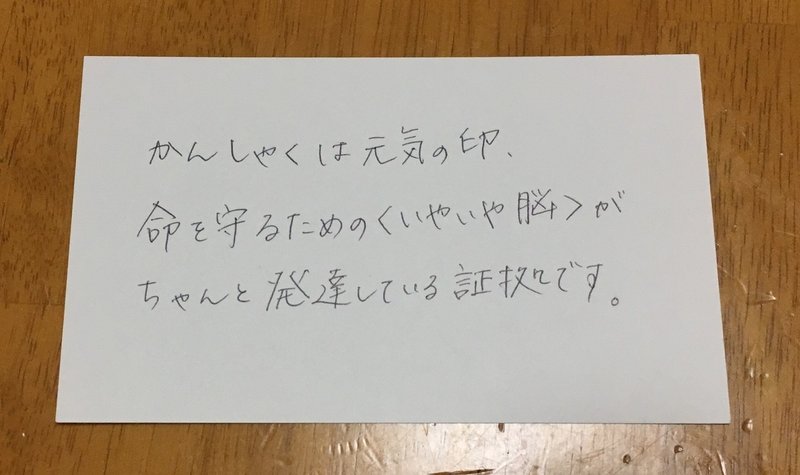 かんしゃくは元気の印、
命を守るための〈いやいや脳〉が
ちゃんと発達している証拠です。